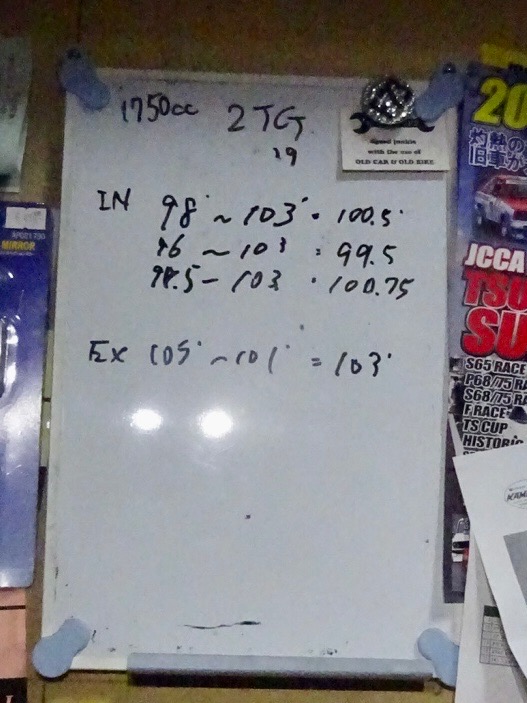 1750cc 2TG
19
Speed junkie
with the can of
OLD CAR & OLD BIKE
IN 98° ~ 103° = 100.5°
96 ~ 103 = 99.5
98.5 - 103 = 100.75
EX 105° ~ 101° = 103°
MIRROR
20
旧車
JCCA
TSU
SU
S65 RACE
P68/75 RA
S68/75 RA
F RACE
TS CUP
HISTORIC